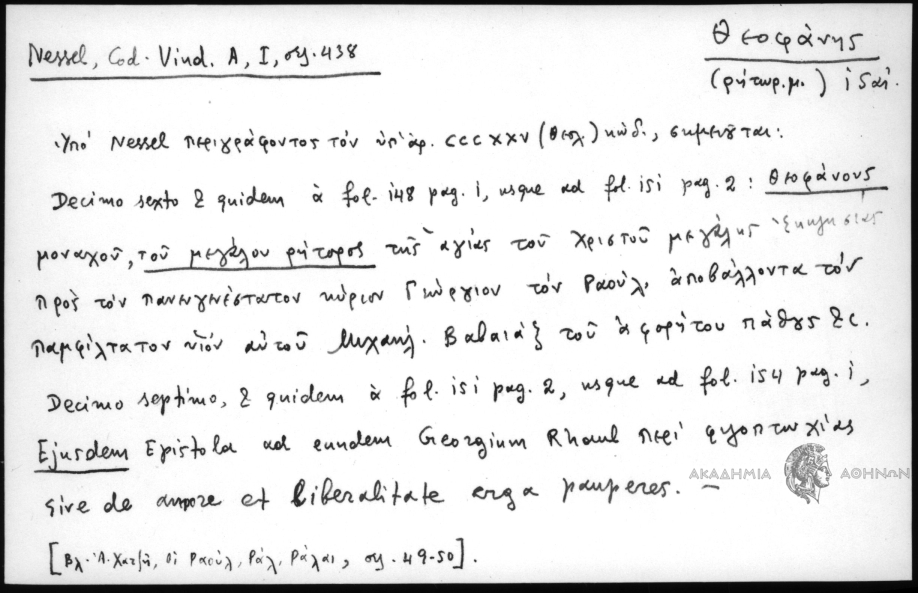 Nessel, Cod. Vind. A, I, σελ. 438
Θεοφάνης
(ρήτωρ. μ.) ις' αἰ.
Ὑπό Nessel περιγράφοντος τόν ὑπ' ἀρ. CCCXXV (θεολ.) κώδ., σημειοῦται:
Decimo sexto & quidem à fol. 148 pag. 1, usque ad fol. 151 pag. 2: Θεοφάνους
μοναχοῦ, τοῦ μεγάλου ρήτορος τῆς ἁγίας τοῦ Χριστοῦ μεγάλης Ἐκκλησίας
πρός τόν πανευγενέστατον κύριον Γεώργιον τόν Ραούλ, ἀποβάλλοντα τόν
παμφίλτατον υἱόν αὐτοῦ Μιχαήλ. Βαβαιάξ τοῦ ἀφορήτου πάθους &c.
Decimo septimo, & quidem à fol. 151 pag. 2, usque ad fol. 154 pag. 1,
Ejusdem Epistola ad eundem Georgium Rhaul περί φιλοπτωχίας
sive de amore et liberalitate erga pauperes. –
[Βλ. Ἀ. Χατζῆ, Οἱ Ραούλ, Ράλ, Ράλαι, σελ. 49-50].
ΑΚΑΔΗΜΙΑ ΑΘΗΝΩΝ